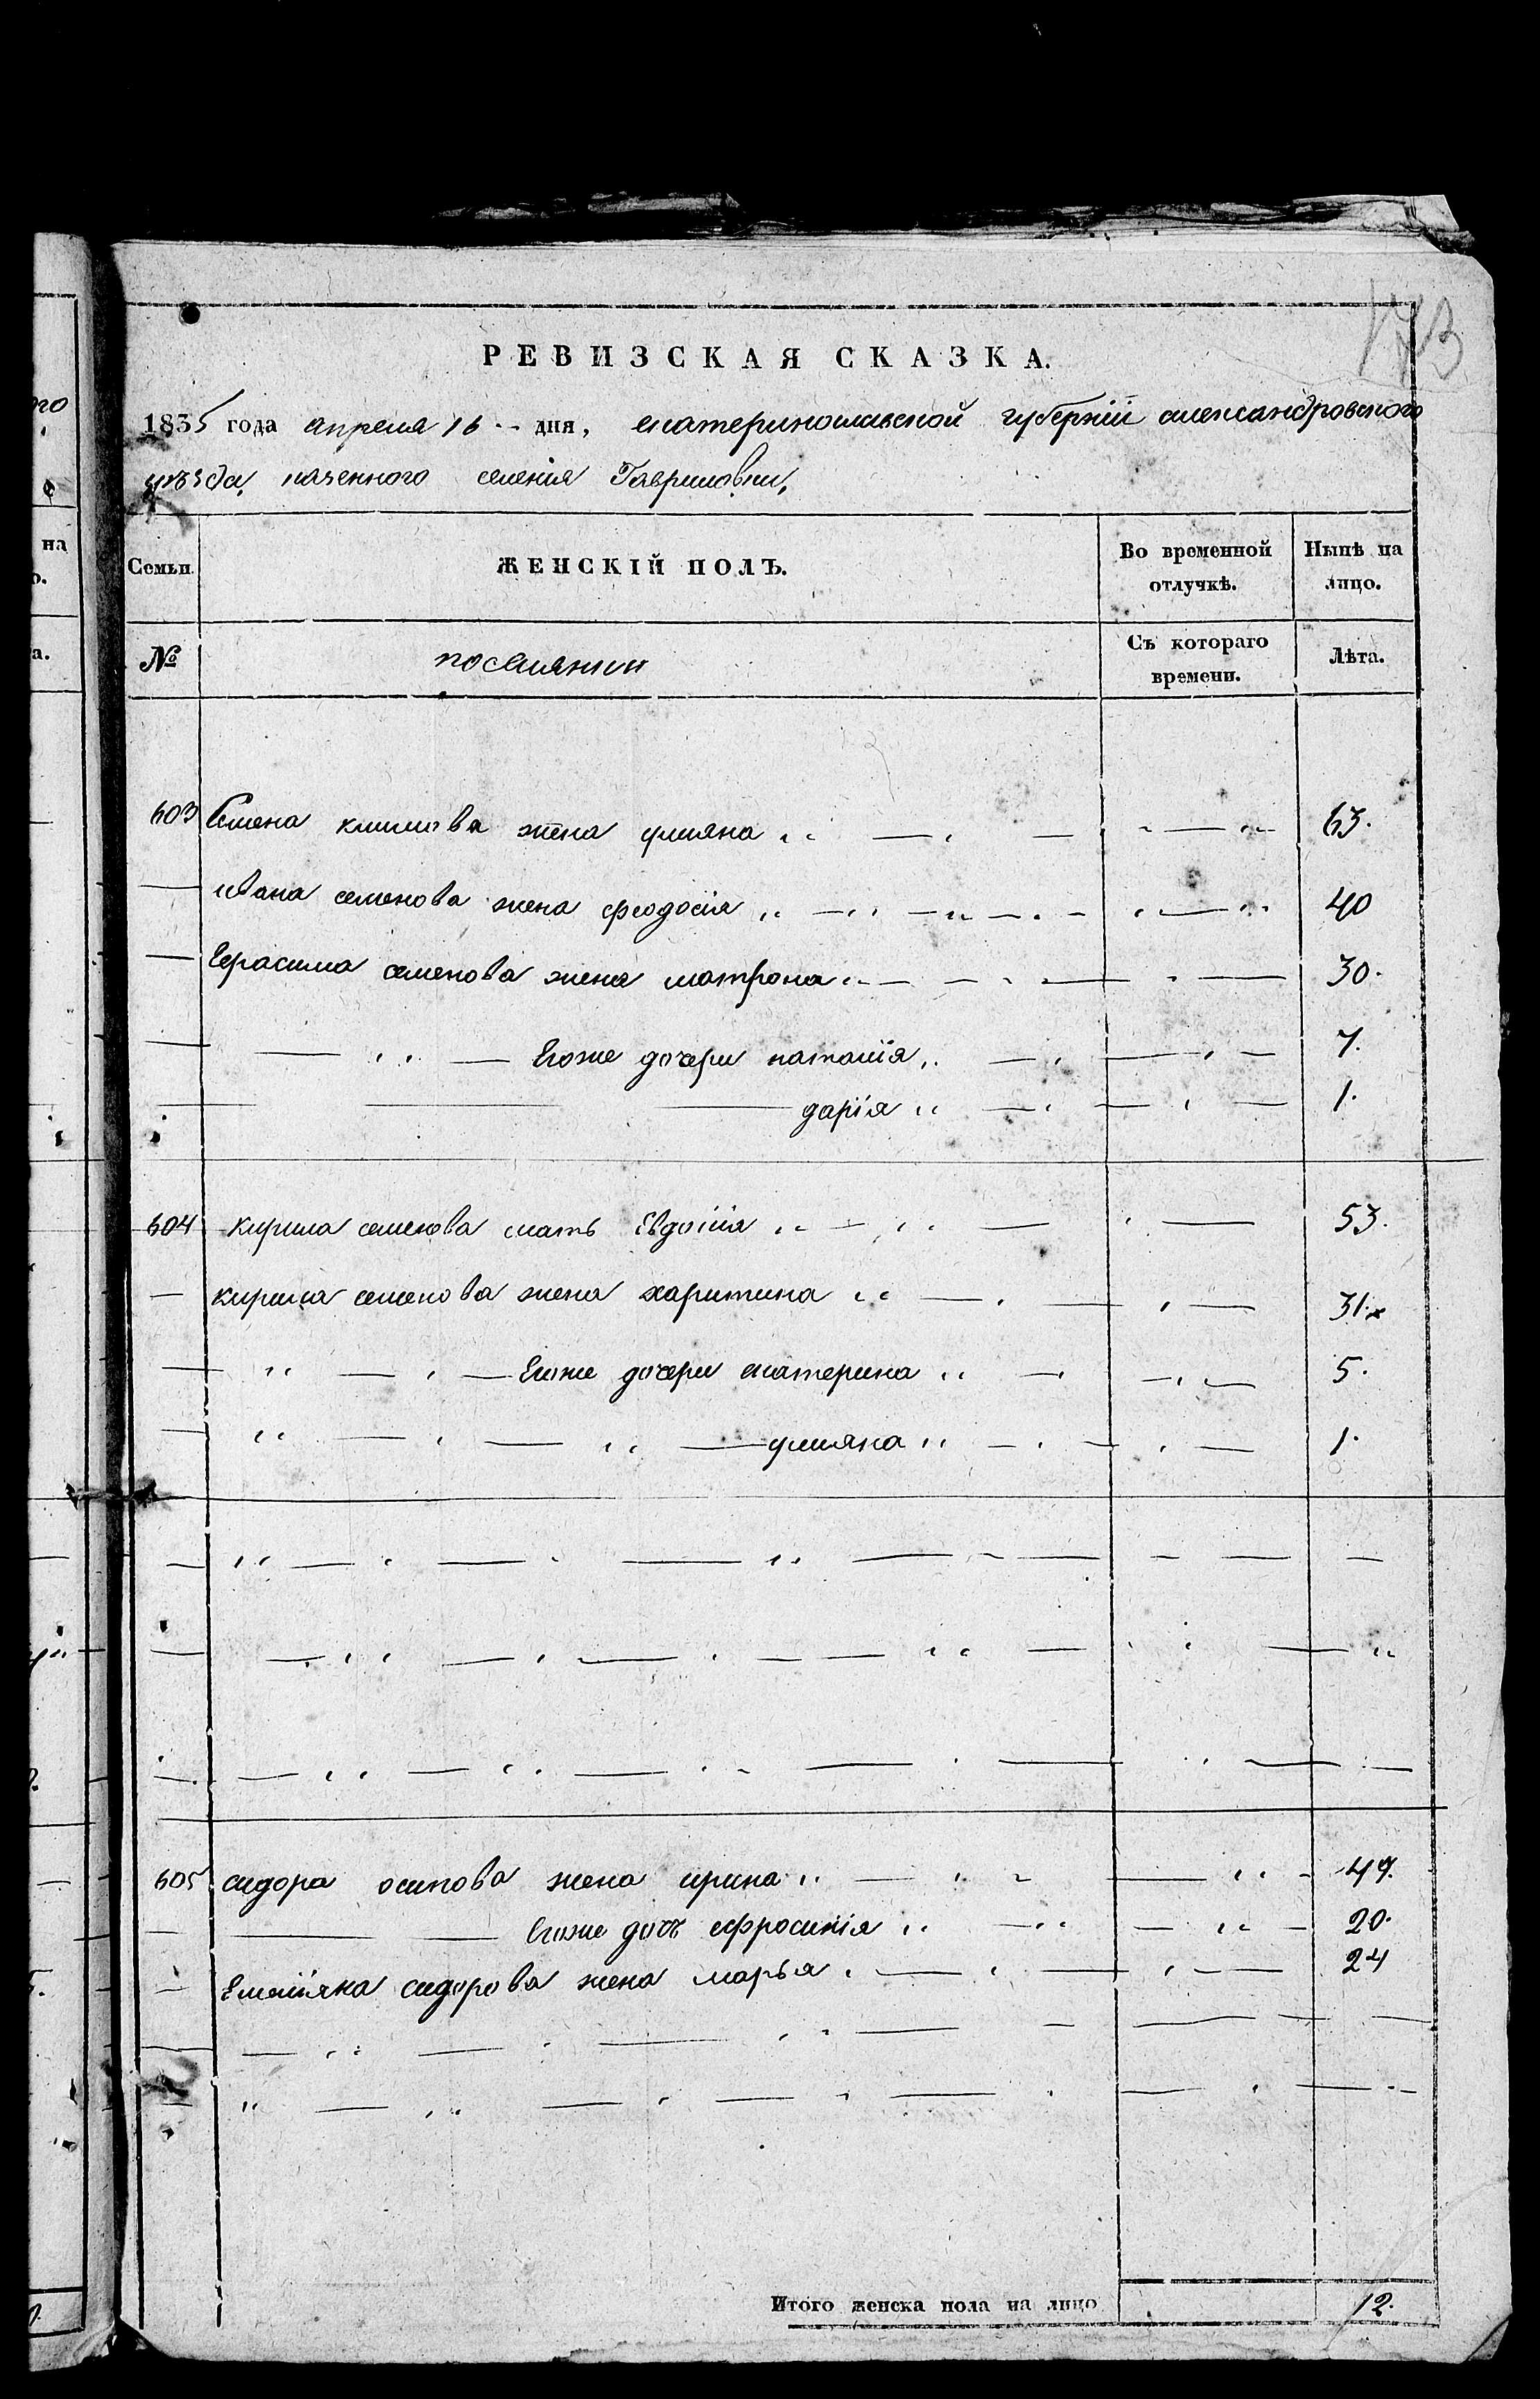 РЕВИЗСКАЯ СКАЗКА.
1835 года апреля 16 дня, екатеринославской губерніи александровского
уѣзда, казенного селенія Гавриловки,
Семьи. ЖЕНСКІЙ ПОЛЪ. Во временной отлучкѣ. Нынѣ на лицо.
№ поселянки Съ котораго времени. Лѣта.
603 Семена климова жена улияна 63.
ивана семенова жена феодосія 40
Герасима семенова жена матрона 30.
Егоже дочери наталія 7.
дарія 1.
604 кирила семенова мать Евдокія 53.
кирила семенова жена харитина 31.
Егоже дочери екатерина 5.
улияна 1.
605 сидора осипова жена ирина 49.
Егоже дочь ефросинія 20.
Емеліяна сидорова жена марья 24
Итого женска пола на лицо 12.